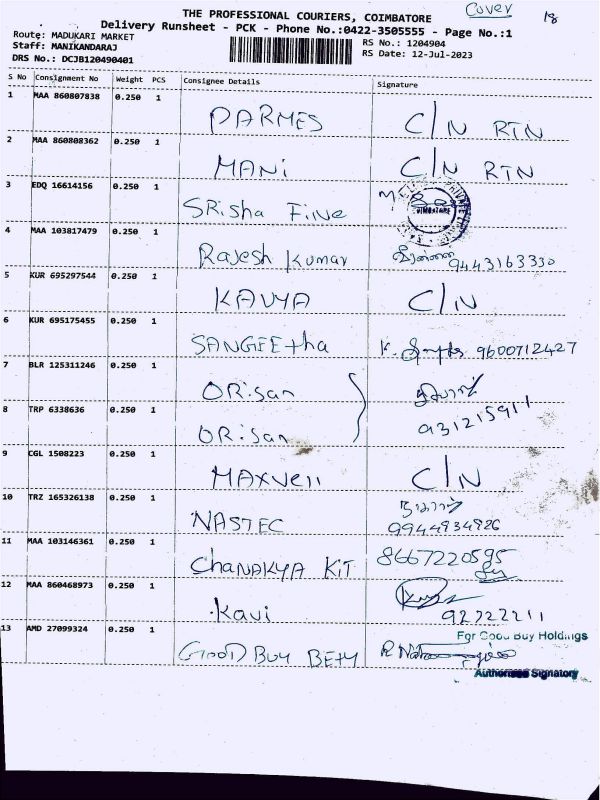 Cover
18
THE PROFESSIONAL COURIERS, COIMBATORE
Delivery Runsheet - PCK - Phone No.:0422-3505555 - Page No.:1
Route: MADUKARI MARKET
Staff: MANIKANDARAJ
DRS No.: DCJB120490401
RS No.: 1204904
RS Date: 12-Jul-2023
S No Consignment No Weight PCS Consignee Details Signature
1 MAA 860807838 0.250 1 PARMES C/N RTN
2 MAA 860808362 0.250 1 MANi C/N RTN
3 EDQ 16614156 0.250 1 SRisha Five
4 MAA 103817479 0.250 1 Rajesh Kumar 9443163330
5 KUR 695297544 0.250 1 KAVYA C/N
6 KUR 695175455 0.250 1 SANGEEtha K. 9600712427
7 BLR 125311246 0.250 1 ORisan
8 TRP 6338636 0.250 1 ORisan 931215911
9 CGL 1508223 0.250 1 MAXVell C/N
10 TRZ 165326138 0.250 1 NASTEC 9944934926
11 MAA 103146361 0.250 1 ChANAKYA KIT 8667220595
12 MAA 860468973 0.250 1 Kavi 92722211
13 AMD 27099324 0.250 1 GOOD BUY BETY
For Good Buy Holdings
Authorised Signatory